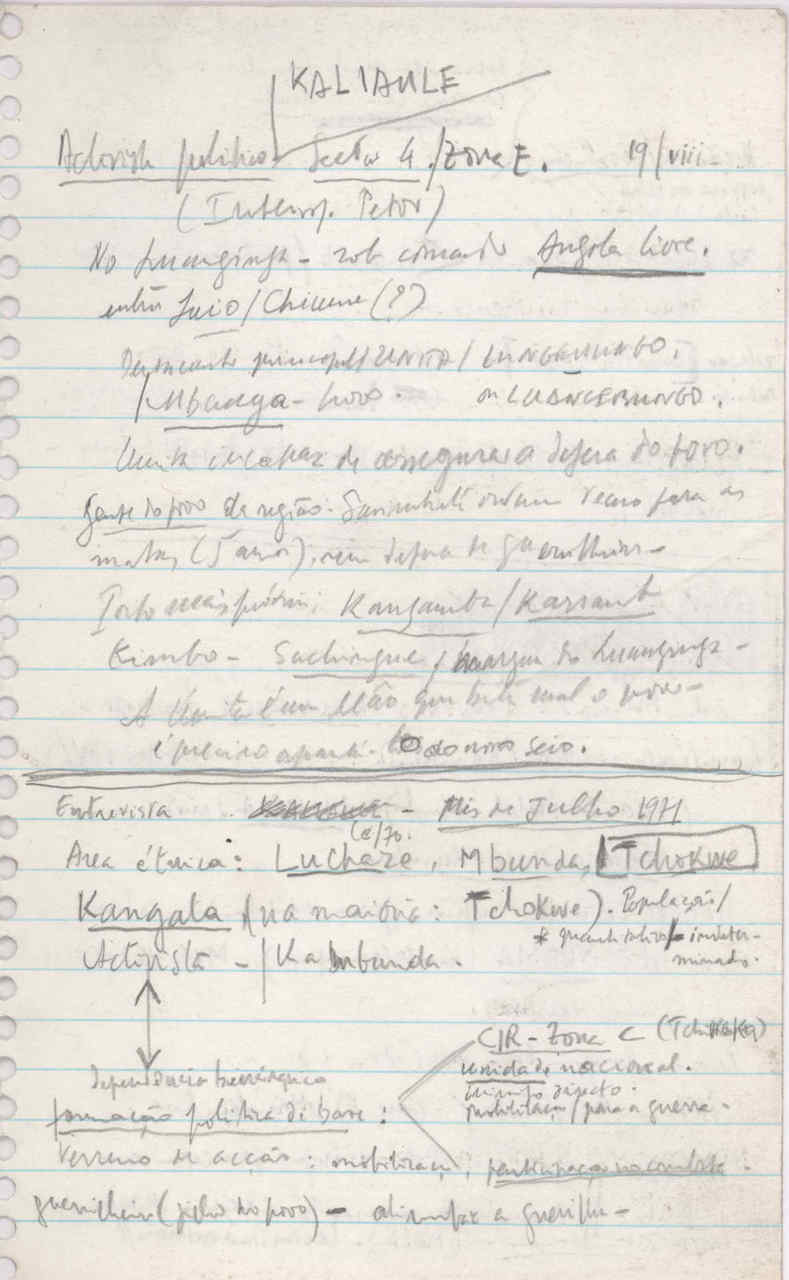 KALIAULE
Activista politico Sector 4./Zona E. 19/viii
(Interrog. Petor)
No Luanginga - sob comando Angola Livre.
entre Luio/Chicune (?)
principal/UNITA/LUNGEMUNGO.
/Mbanga - povo. ou LUANGEMUNGO.
Unita incapaz de assegurar a defesa do povo.
Gente do povo da região. Savimbi ordem para as
matas (5 anos), sem defesa de guerrilheiros -
Posto mais próximo: Kangamba/Kassamb
Kimbo - Sachingue / margem do Luanginga -
A Unita é um que mal o povo -
é preciso do nosso seio.
Entrevista - Mês de Julho 1971
(a/70.
Area étnica: Luchaze, Mbunda, Tchokwe
Kangala (na maioria: Tchokwe). População/
* quantitativo/indeter-
minado.
Activista - /Ka Mbunda.
CIR - Zona C
unidade nacional.
dependência hierárquica
mobilização/para a guerra.
formação politica de base:
Terreno de acção: mobilização, participação no combate.
guerrilheiro (filho do povo) - alimentar a guerrilha -